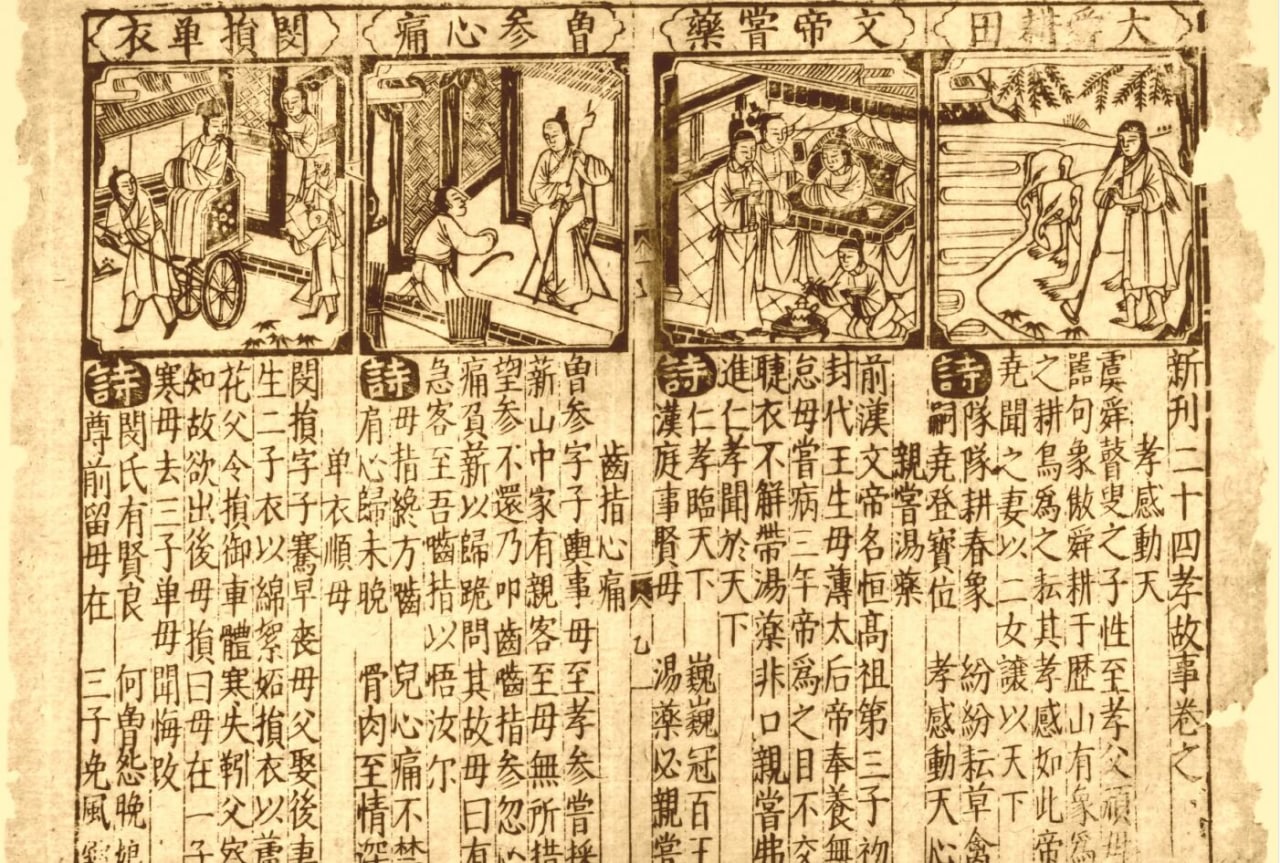 大舜耕田
新刊二十四孝故事卷之
孝感動天
虞舜瞽叟之子性至孝父頑母
嚚句象傲舜耕于歷山有象為
之耕鳥為之耘其孝感如此帝
堯聞之妻以二女讓以天下
詩
隊隊耕春象 紛紛耘草禽
嗣堯登寶位 孝感動天心
文帝嘗藥
親嘗湯藥
前漢文帝名恒高祖第三子初
封代王生母薄太后帝奉養無
怠母嘗病三年帝為之目不交
睫衣不解帶湯藥非口親嘗弗
進仁孝聞於天下
詩
仁孝臨天下 巍巍冠百王
漢庭事賢母 湯藥必親嘗
曾参心痛
齒指心痛
曾参字子輿事母至孝参嘗採
薪山中家有親客至母無所措
望参不還乃叩齒嚙指参忽心
痛負薪以歸跪問其故母曰有
急客至吾嚙指以悟汝尔
詩
母指纔方嚙 兒心痛不禁
肩心歸未晚 骨肉至情深
閔損单衣
单衣順母
閔損字子騫早喪母父娶後妻
生二子衣以綿絮妬損衣以蘆
花父令損御車體寒失靷父察
知故欲出後母損曰母在一子
寒母去三子单母聞悔改
詩
閔氏有賢良 何魯怨晚娘
尊前留母在 三子免風